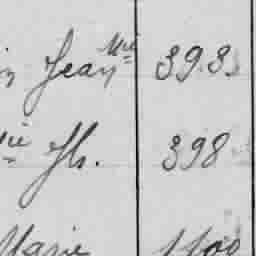 Jean Mie 393.
Jh. 398
Marie 1100